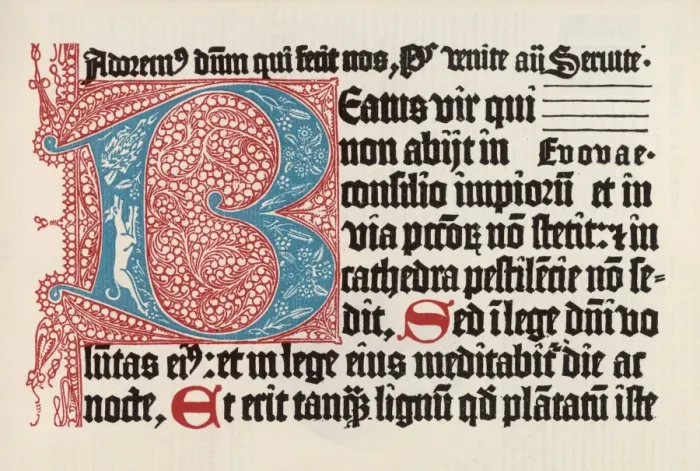 Adorem⁹ dñm qui fecit nos, Ps̄ venite añ Seruite·
Beatus vir qui
non abijt in Evovae·
consilio impiorū et in
via pccōꝝ nō stetit: ⁊ in
cathedra pestilēcie nō se=
dit, Sed ī lege dñi vo
lūtas ei⁹: et in lege eius meditabit᷑ die ac
nocte, Et erit tanqꝫ lignū qd̄ plātatū iste